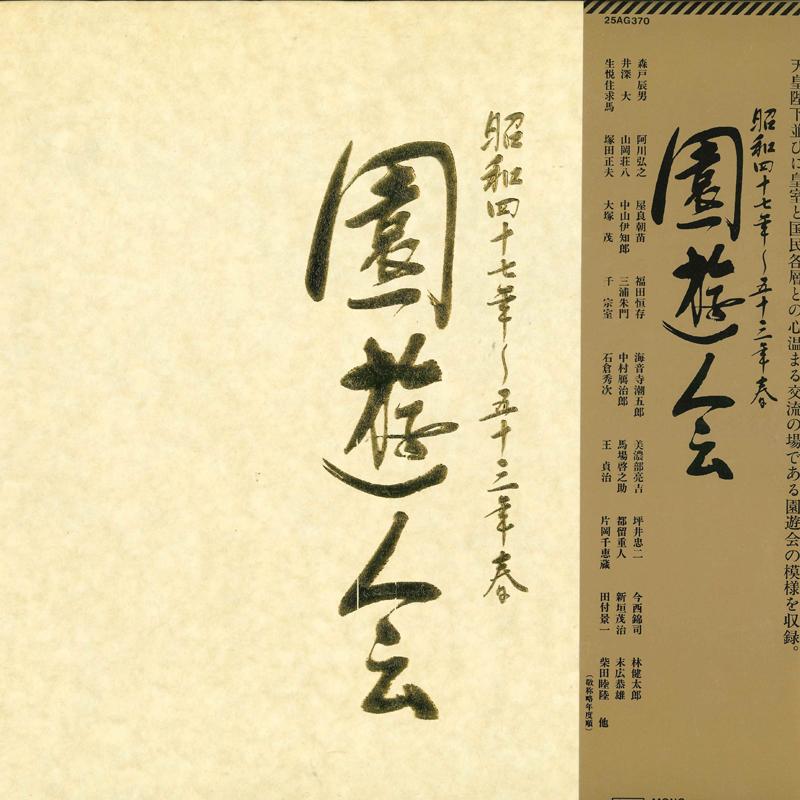 昭和四十七年〜五十三年春
園遊会
25AG370
天皇陛下並びに皇室と国民各層との心温まる交流の場である園遊会の模様を収録。
昭和四十七年〜五十三年春
園遊会
森戸辰男 阿川弘之 屋良朝苗 福田恒存 海音寺潮五郎 美濃部亮吉 坪井忠二 今西錦司 林健太郎
井深 大 山岡荘八 中山伊知郎 三浦朱門 中村鴈治郎 馬場啓之助 都留重人 新垣茂治 末広恭雄
生悦住求馬 塚田正夫 大塚 茂 千 宗室 石倉秀次 王 貞治 片岡千恵蔵 田付景一 柴田睦陸 他
(敬称略年度順)